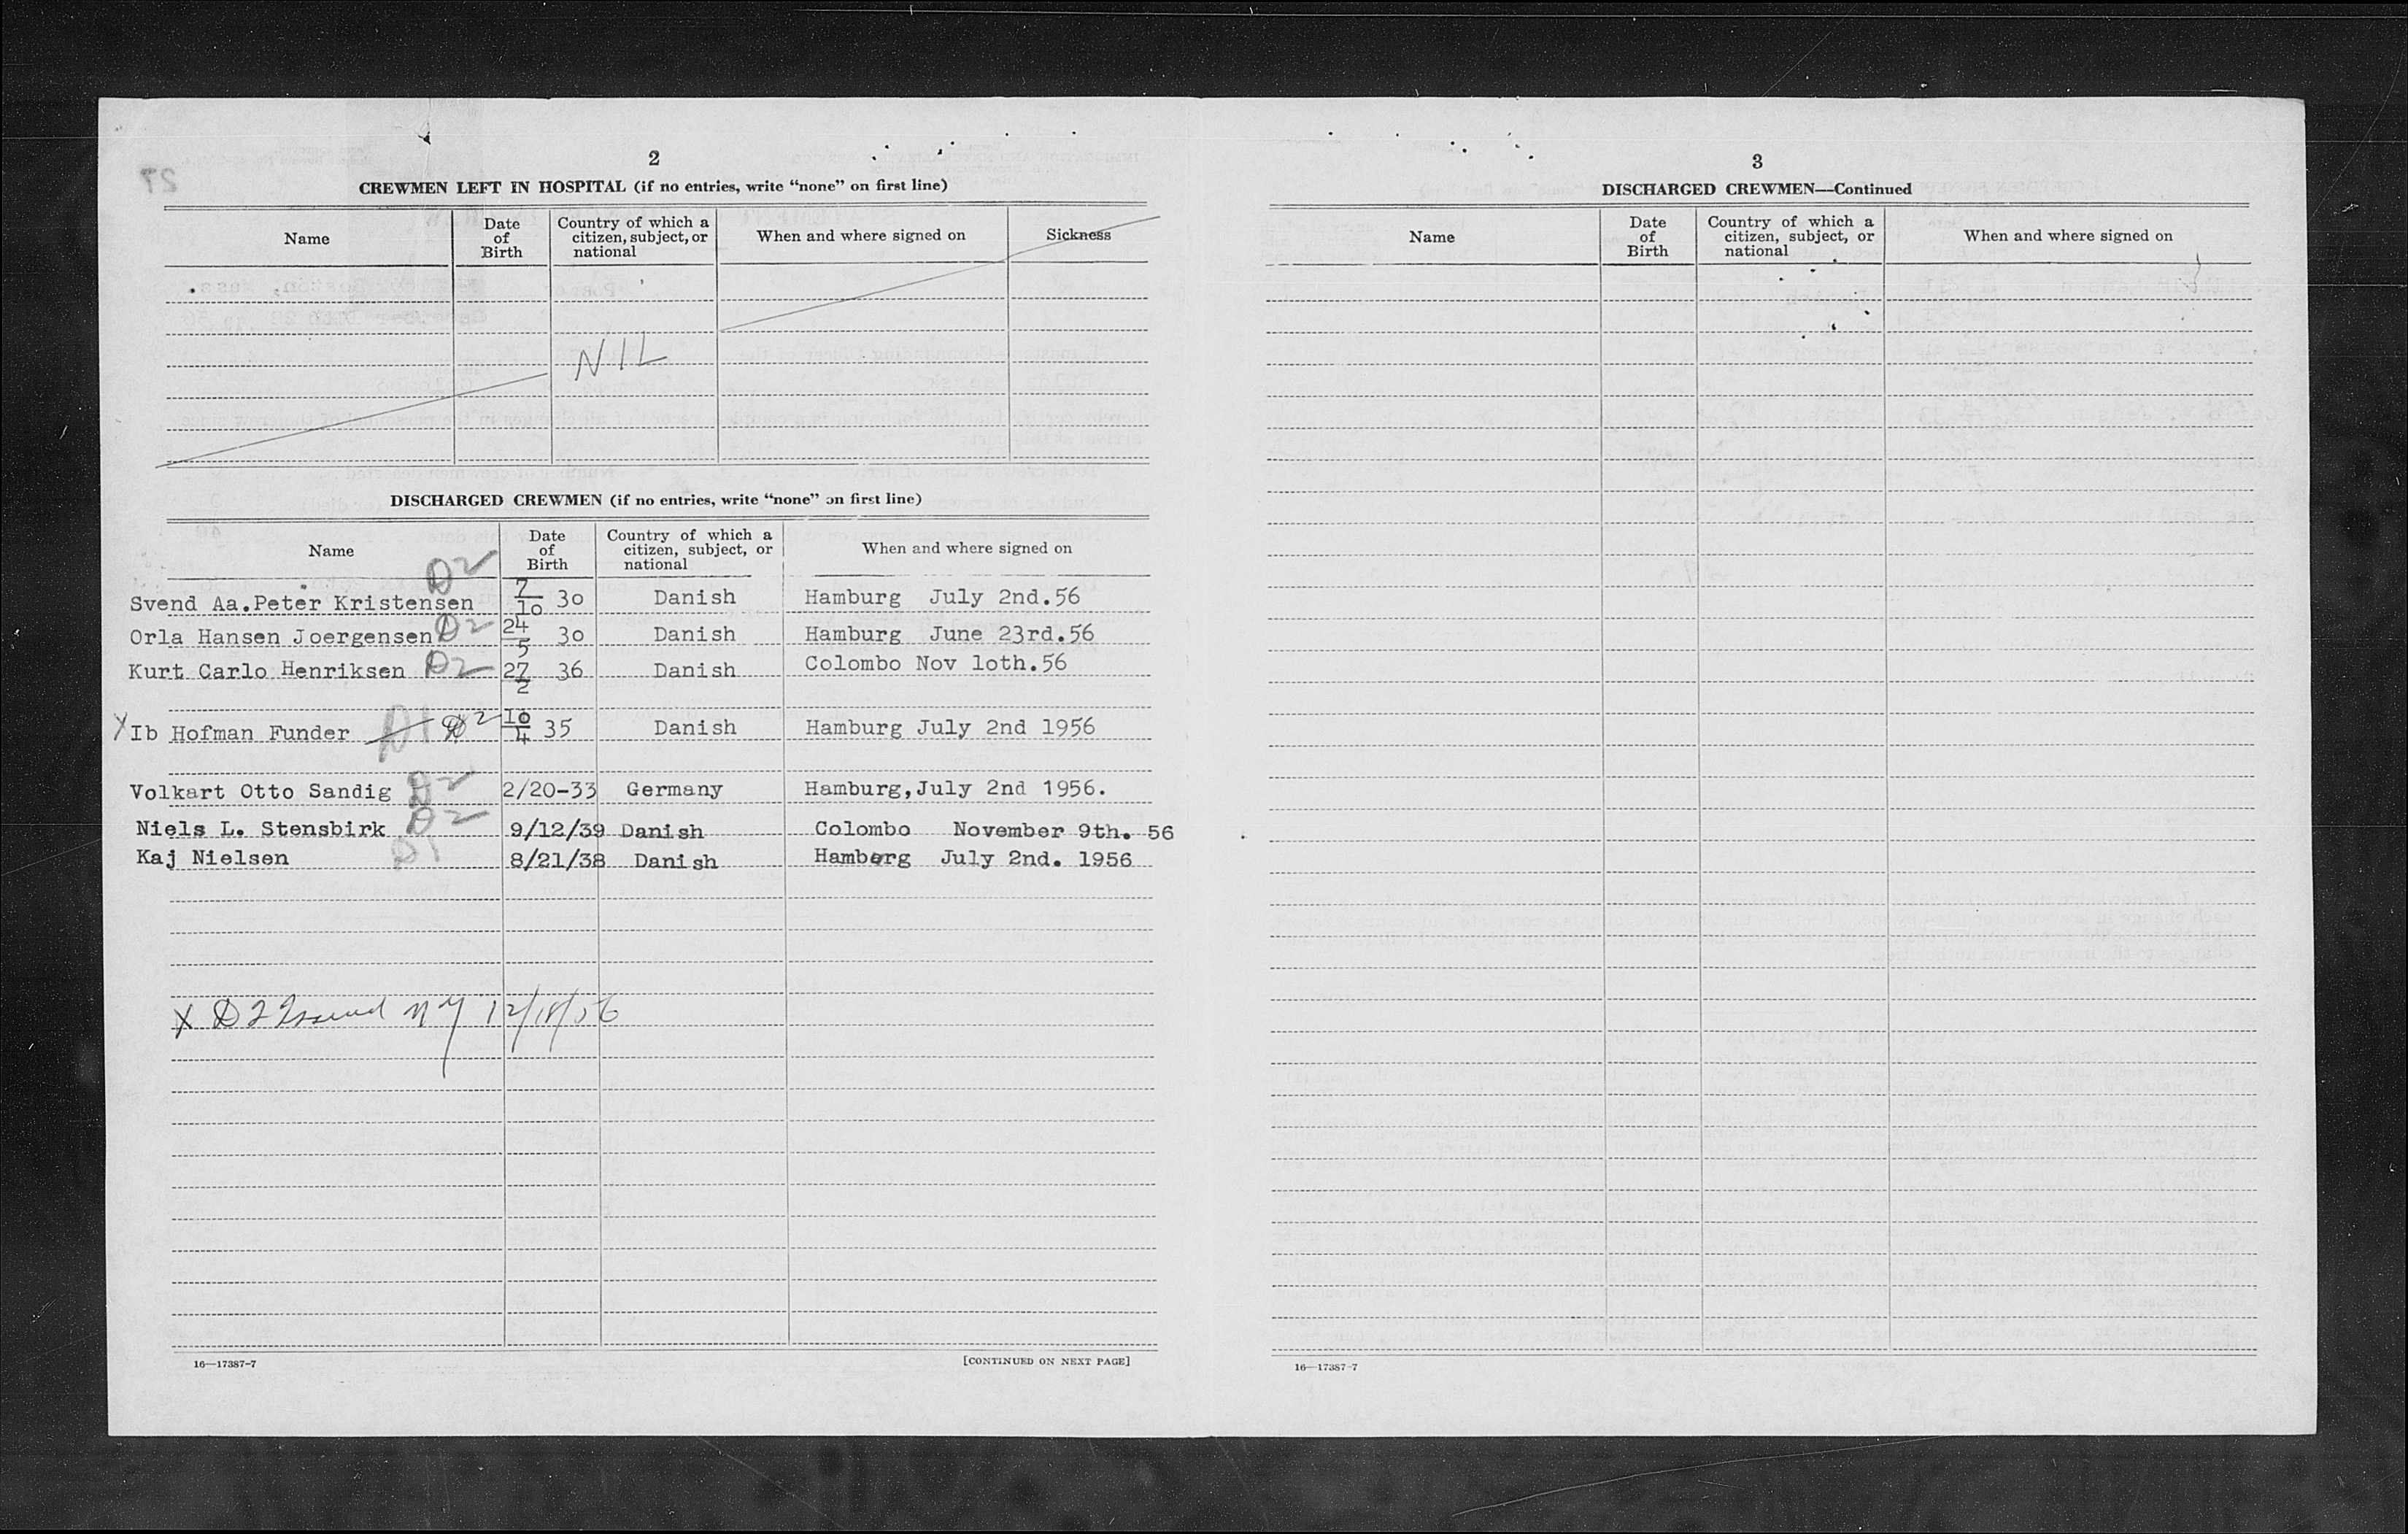 2
CREWMEN LEFT IN HOSPITAL (if no entries, write “none” on first line)
Name
Date of Birth
Country of which a citizen, subject, or national
When and where signed on
Sickness
NIL
DISCHARGED CREWMEN (if no entries, write “none” on first line)
Name
Date of Birth
Country of which a citizen, subject, or national
When and where signed on
Svend Aa.Peter Kristensen D2 7/10 30 Danish Hamburg July 2nd.56
Orla Hansen Joergensen D2 24/5 30 Danish Hamburg June 23rd.56
Kurt Carlo Henriksen D2 27/2 36 Danish Colombo Nov 1oth.56
X Ib Hofman Funder D1 D2 1o/4 35 Danish Hamburg July 2nd 1956
Volkart Otto Sandig D2 2/20-33 Germany Hamburg,July 2nd 1956.
Niels L. Stensbirk D2 9/12/39 Danish Colombo November 9th. 56
Kaj Nielsen D1 8/21/38 Danish Hamberg July 2nd. 1956
X D2 Issued NY 12/18/56
16—17387-7
[CONTINUED ON NEXT PAGE]
3
DISCHARGED CREWMEN—Continued
Name
Date of Birth
Country of which a citizen, subject, or national
When and where signed on
16—17387-7